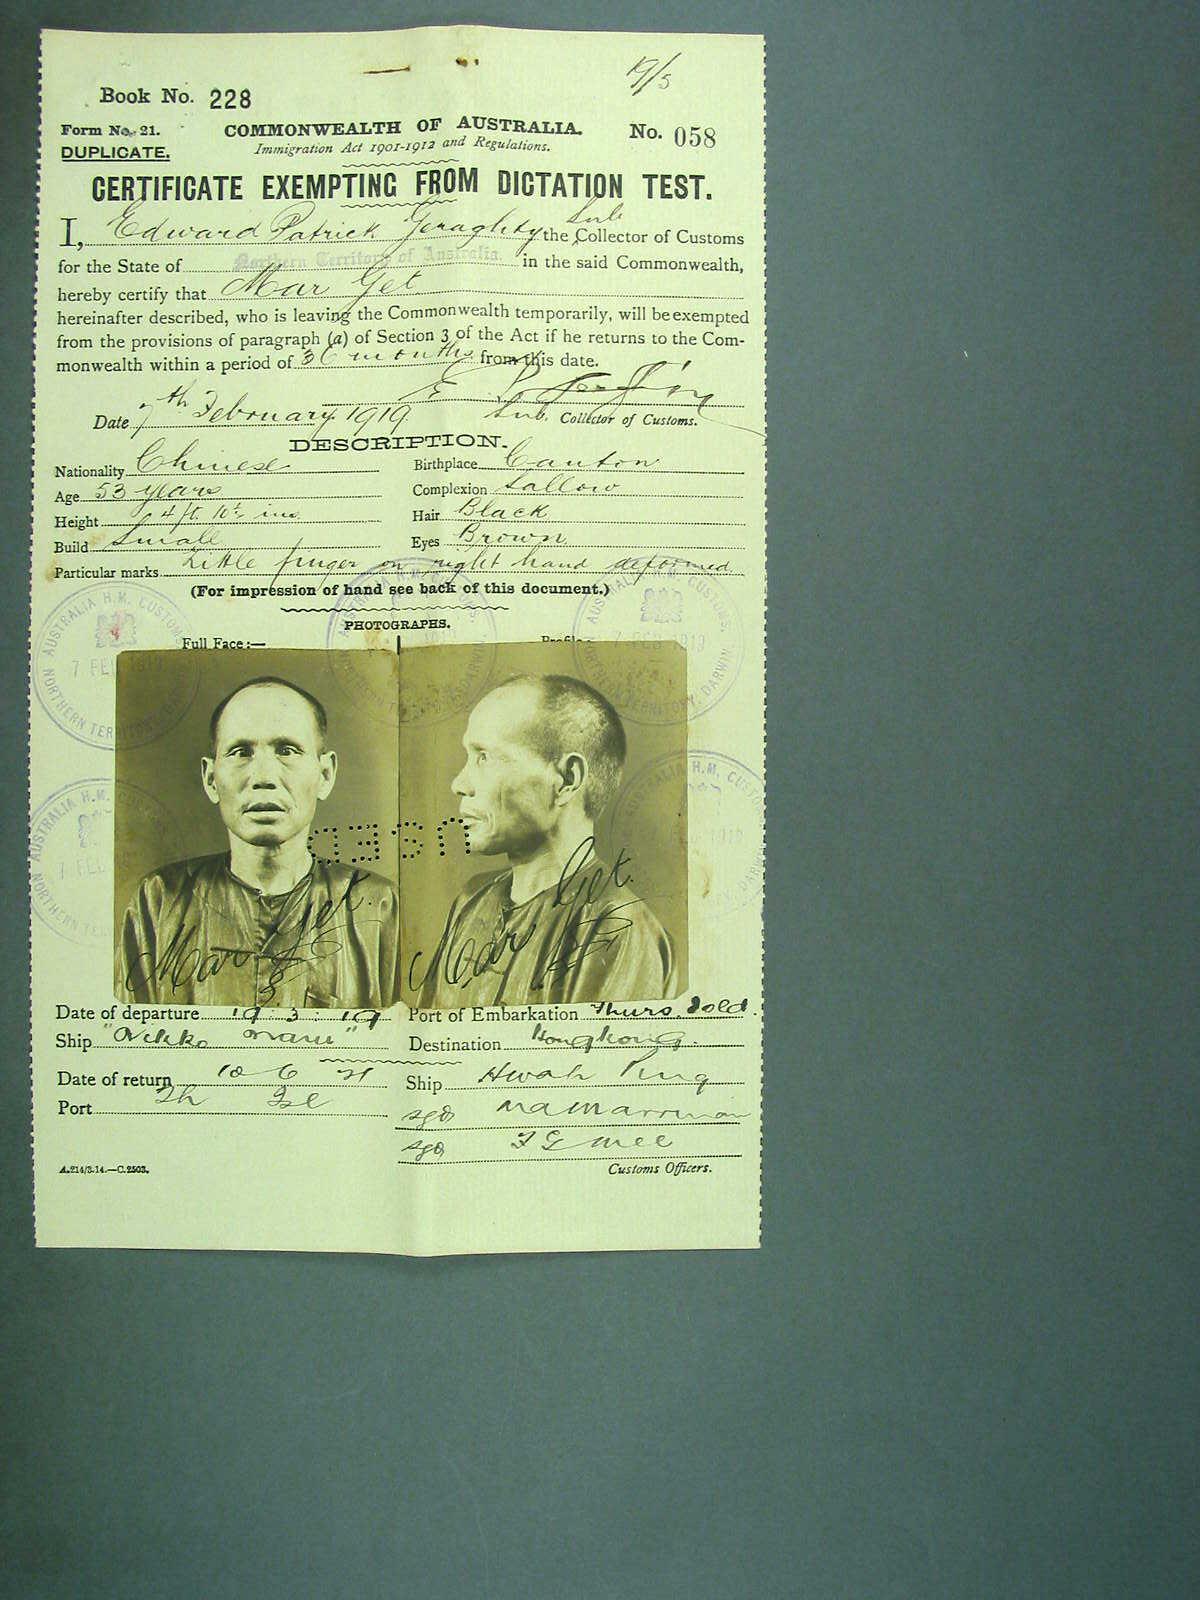 19/5
Book No. 228
Form No. 21.
COMMONWEALTH OF AUSTRALIA.
No. 058
DUPLICATE.
Immigration Act 1901-1912 and Regulations.
CERTIFICATE EXEMPTING FROM DICTATION TEST.
I, Edward Patrick Geraghty the Sub Collector of Customs
for the State of Northern Territory of Australia. in the said Commonwealth,
hereby certify that Mar Get
hereinafter described, who is leaving the Commonwealth temporarily, will be exempted
from the provisions of paragraph (a) of Section 3 of the Act if he returns to the Com-
monwealth within a period of 36 months from this date.
Date 7th February 1919
Sub. Collector of Customs.
DESCRIPTION.
Nationality Chinese
Birthplace Canton
Age 53 years
Complexion Sallow
Height 4 ft. 10½ ins
Hair Black
Build Small
Eyes Brown
Particular marks Little finger on right hand deformed
(For impression of hand see back of this document.)
PHOTOGRAPHS.
Full Face:—
Profile:
AUSTRALIA H.M. CUSTOMS.
7 FEB 1919
NORTHERN TERRITORY, DARWIN.
USED
Mar Get.
Mar Get.
Date of departure 19:3:19
Port of Embarkation Thurs. Isld.
Ship "Nikko Maru"
Destination Hongkong.
Date of return 10 6 21
Ship Hwah Ping
Port Th Isl
sgd
sgd F G Mee
A.214/3.14.—C.2503.
Customs Officers.